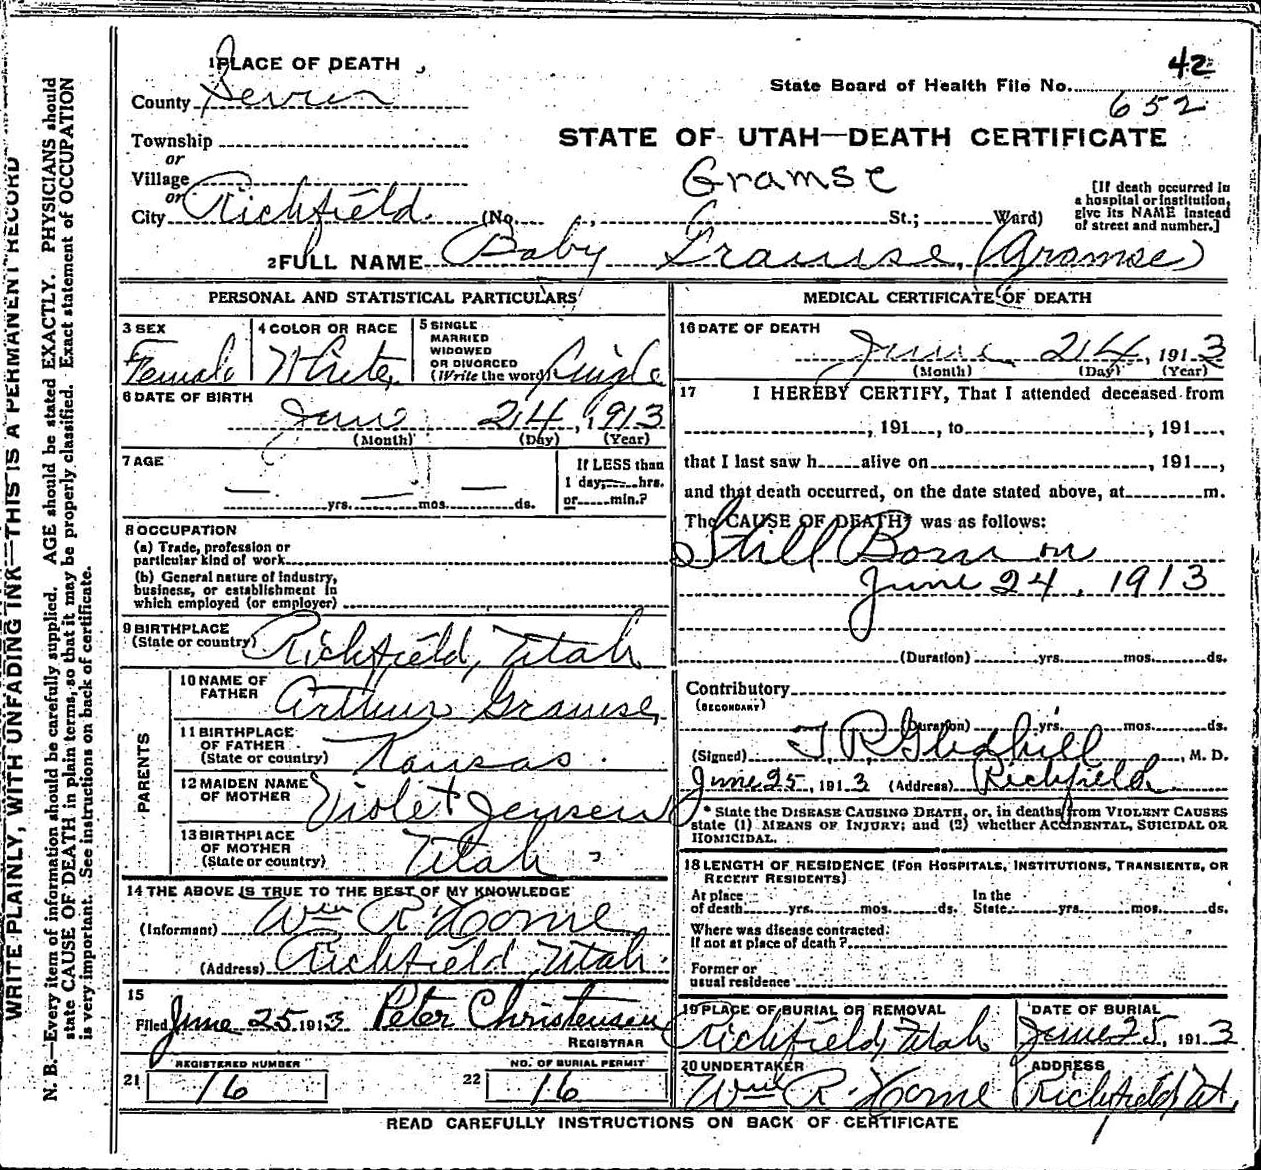 WRITE PLAINLY, WITH UNFADING INK—THIS IS A PERMANENT RECORD
N. B.—Every item of information should be carefully supplied. AGE should be stated EXACTLY. PHYSICIANS should
state CAUSE OF DEATH in plain terms, so that it may be properly classified. Exact statement of OCCUPATION
is very important. See instructions on back of certificate.
1 PLACE OF DEATH
County Sevier
Township
or
Village
or
City Richfield (No. , St.; Ward)
42
State Board of Health File No.
652
STATE OF UTAH—DEATH CERTIFICATE
Gramse
[If death occurred in
a hospital or institution,
give its NAME instead
of street and number.]
2 FULL NAME Baby Grause, (Gramse)
PERSONAL AND STATISTICAL PARTICULARS
3 SEX
Female
4 COLOR OR RACE
White
5 SINGLE
MARRIED
WIDOWED
OR DIVORCED
(Write the word) Single
6 DATE OF BIRTH
June 24, 1913
(Month) (Day) (Year)
7 AGE
— yrs. — mos. — ds.
If LESS than
1 day, hrs.
or min.?
8 OCCUPATION
(a) Trade, profession or
particular kind of work
(b) General nature of industry,
business, or establishment in
which employed (or employer)
9 BIRTHPLACE
(State or country) Richfield, Utah
PARENTS
10 NAME OF
FATHER Arthur Grause,
11 BIRTHPLACE
OF FATHER
(State or country) Kansas.
12 MAIDEN NAME
OF MOTHER Violet Jensen
13 BIRTHPLACE
OF MOTHER
(State or country) Utah
14 THE ABOVE IS TRUE TO THE BEST OF MY KNOWLEDGE
(Informant) Wm R. Horne
(Address) Richfield, Utah.
15
Filed June 25 1913 Peter Christensen
REGISTRAR
REGISTERED NUMBER
21 16
NO. OF BURIAL PERMIT
22 16
MEDICAL CERTIFICATE OF DEATH
16 DATE OF DEATH
June 24, 1913
(Month) (Day) (Year)
17 I HEREBY CERTIFY, That I attended deceased from
, 191 , to , 191 ,
that I last saw h alive on , 191 ,
and that death occurred, on the date stated above, at m.
The CAUSE OF DEATH* was as follows:
Still Born on
June 24, 1913
(Duration) yrs. mos. ds.
Contributory
(SECONDARY)
(Duration) yrs. mos. ds.
(Signed) T. R. Gledhill, M. D.
June 25, 1913 (Address) Richfield
* State the DISEASE CAUSING DEATH, or, in deaths from VIOLENT CAUSES
state (1) MEANS OF INJURY; and (2) whether ACCIDENTAL, SUICIDAL OR
HOMICIDAL.
18 LENGTH OF RESIDENCE (FOR HOSPITALS, INSTITUTIONS, TRANSIENTS, OR
RECENT RESIDENTS)
At place In the
of death yrs. mos. ds. State yrs. mos. ds.
Where was disease contracted
If not at place of death?
Former or
usual residence
19 PLACE OF BURIAL OR REMOVAL
Richfield, Utah
DATE OF BURIAL
June 25, 1913
20 UNDERTAKER
Wm R. Horne
ADDRESS
Richfield, Ut.
READ CAREFULLY INSTRUCTIONS ON BACK OF CERTIFICATE